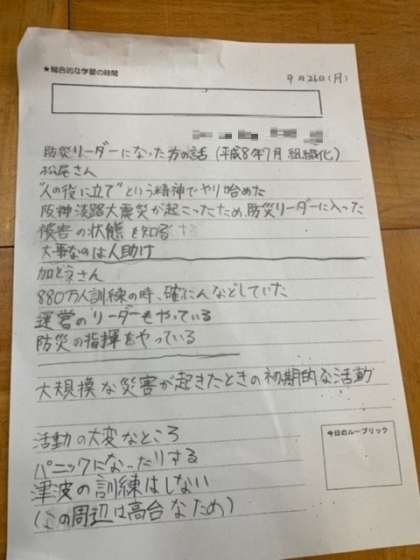 ★総合的な学習の時間
9月26日(月)
防災リーダーになった方の話(平成8年7月 組織化)
松尾さん
"人の役に立て"という精神でやり始めた
阪神淡路大震災が起こったため、防災リーダーに入った
被害の状態を知る
大事なのは人助け
加とうさん
880万人訓練の時、確にんなどしていた
運営のリーダーもやっている
防災の指揮をやっている
大規模な災害が起きたときの初期的な活動
活動の大変なところ
今日のルーブリック
パニックになったりする
津波の訓練はしない
の周辺は高台なため)